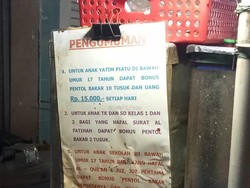 PENGUMUMAN
1. UNTUK ANAK YATIM PIATU DI BAWAH
UMUR 17 TAHUN DAPAT BONUS
PENTOL BAKAR 10 TUSUK DAN UANG
Rp. 15.000,- SETIAP HARI
2. UNTUK ANAK TK DAN SD KELAS 1 DAN
2 BAGI YANG HAFAL SURAT AL
FATIHAH DAPAT BONUS PENTOL
BAKAR 2 TUSUK.
UNTUK ANAK SEKOLAH DI BAWAH
UMUR 17 TAHUN HAFAL
JUZ, JUZ PERTAMA
DAPAT BONUS PENTOL